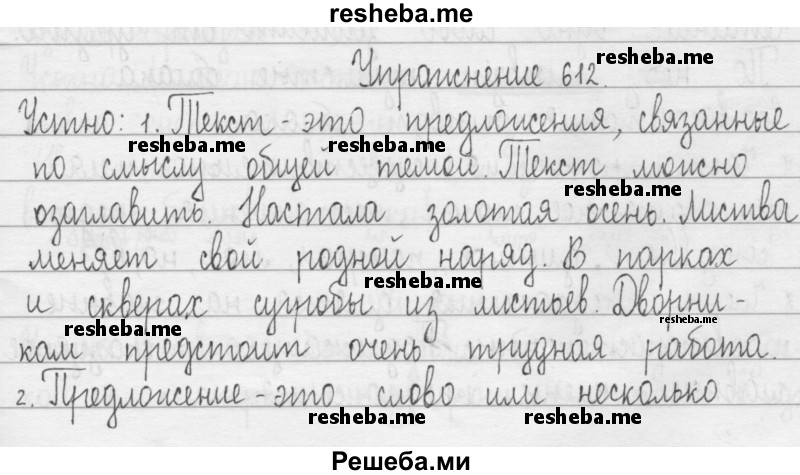 resheba.me
resheba.me
Упражнение 612.
Устно: 1. Текст это предложения, связанные
resheba.me resheba.me
по смыслу общей темой. Текст можно
resheba.me
озаглавить. Настала золотая осень. Листва
меняет свой родной наряд. В парках
resheba.me
и скверах сугробы из листьев. Дворни-
resheba.me resheba.me
кам предстоит очень трудная работа.
2. Предложение - это слово или несколько
resheba.me resheba.me
Решеба.ми